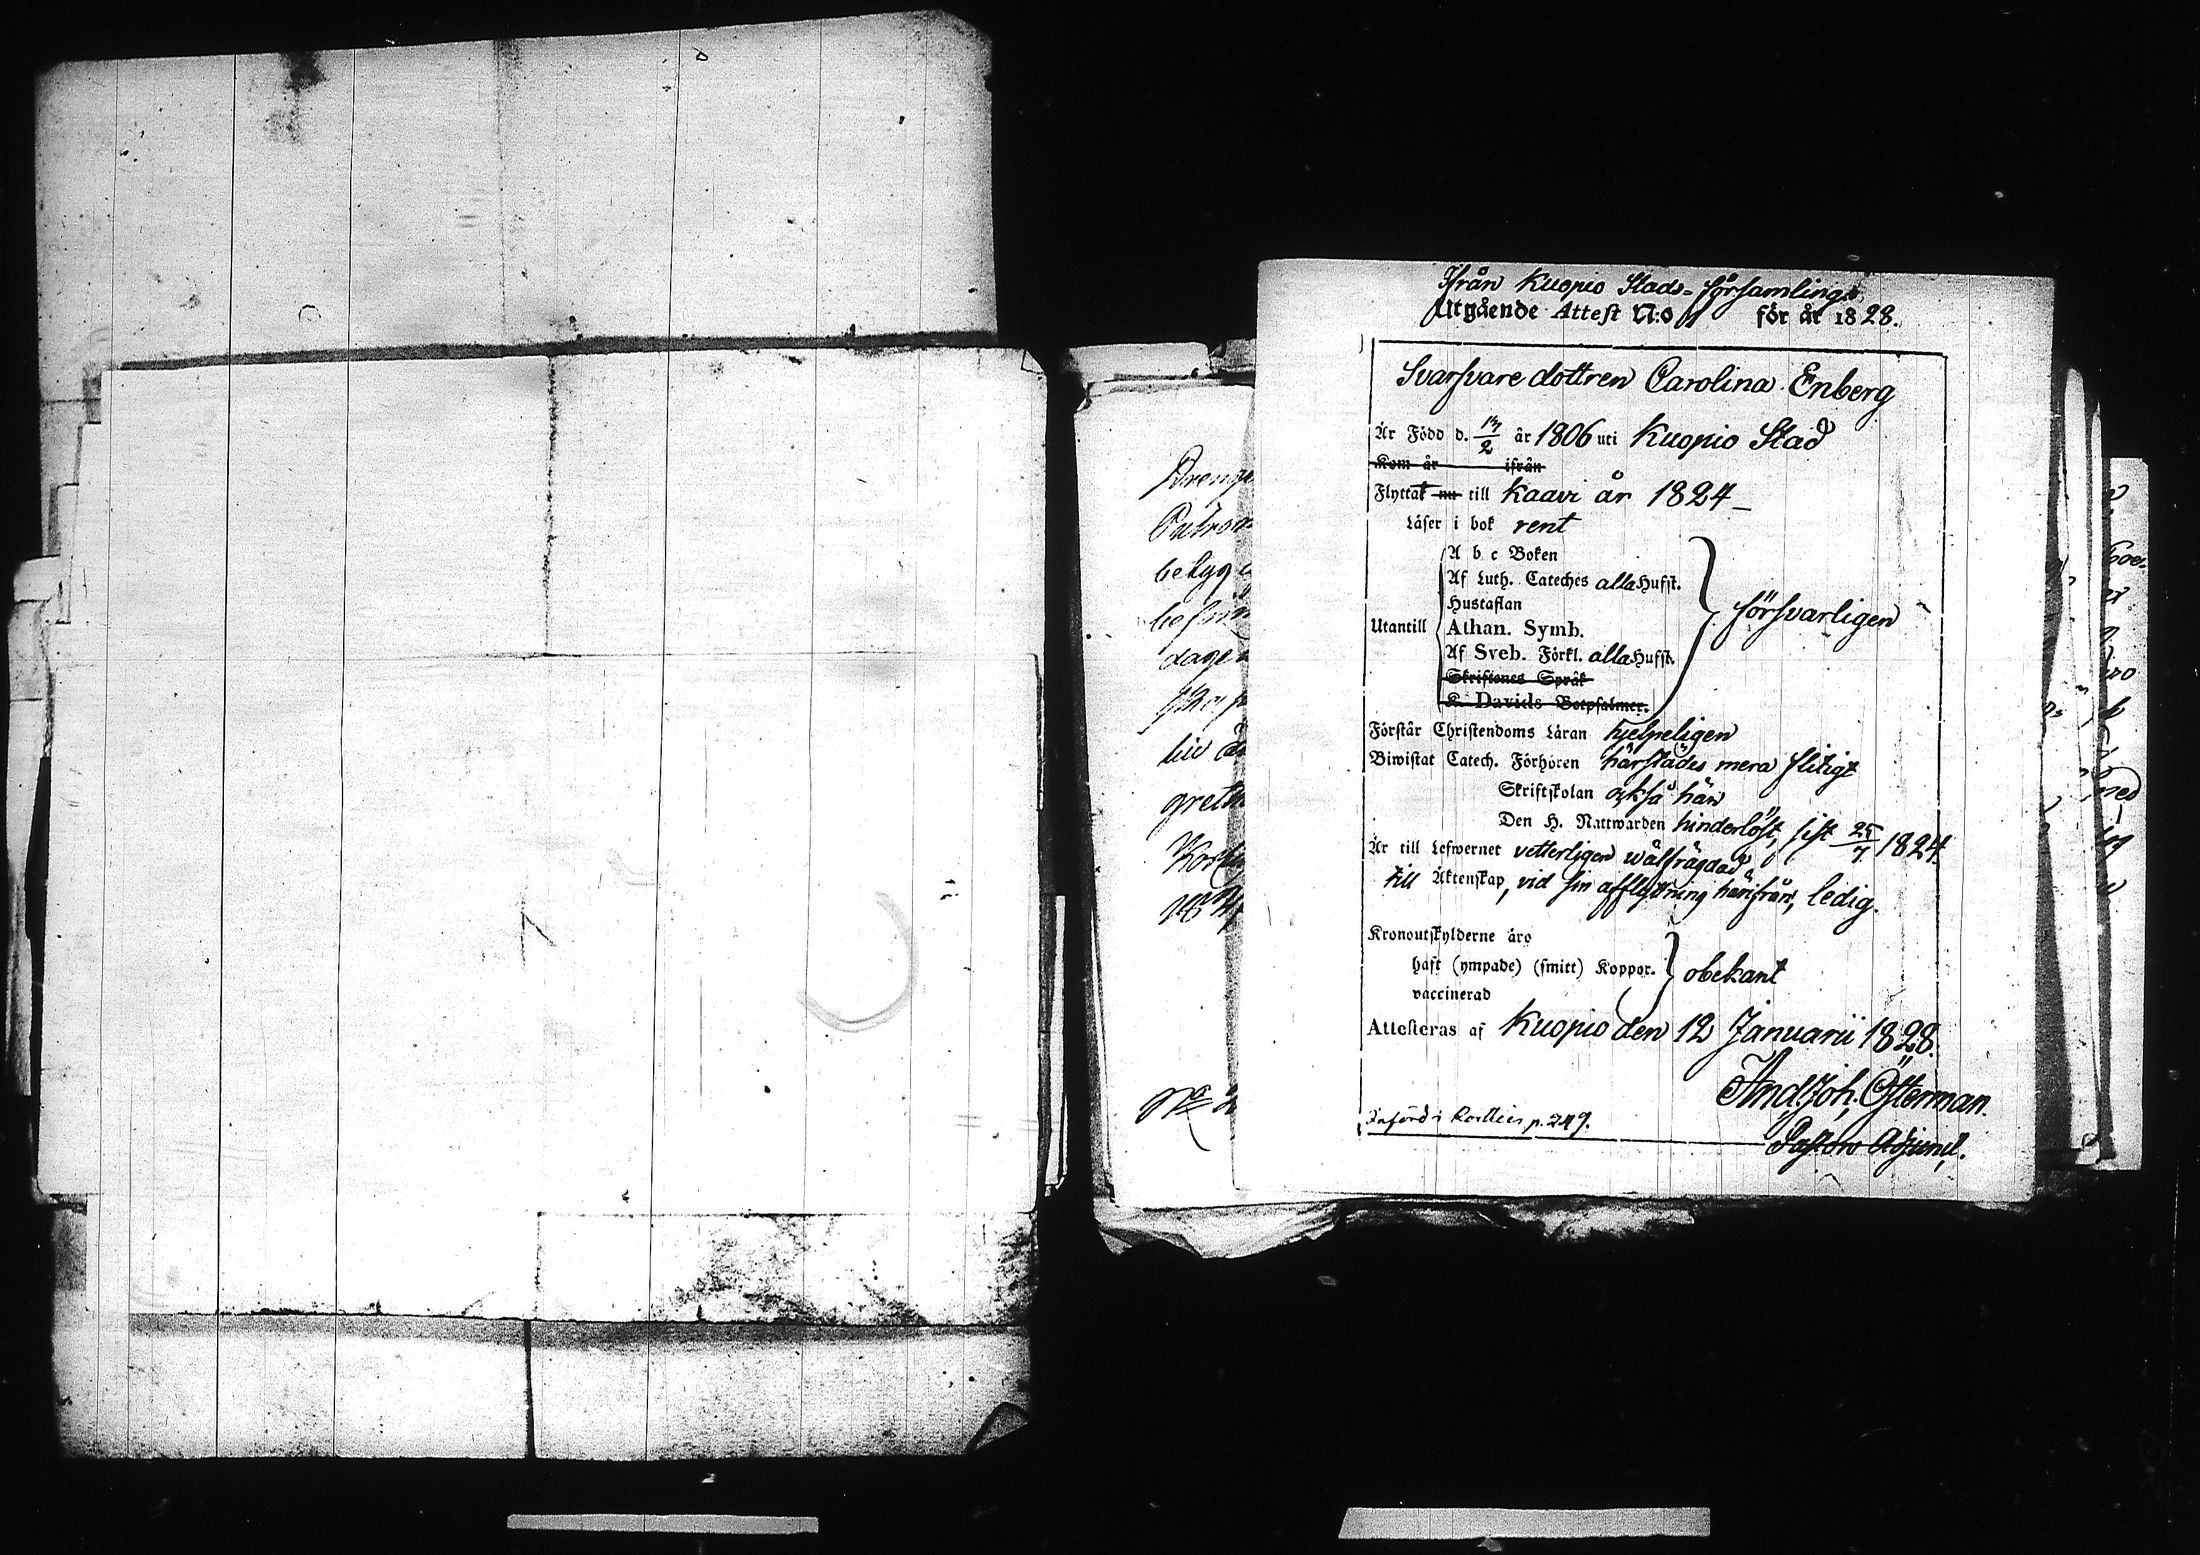 Ifrån Kuopio Stads-församling
Utgående Attest N:o för år 1828.
Svarfvare dottren Carolina Enberg
År Född d. 13/2 år 1806 uti Kuopio Stad
Kom år ifrån
Flyttat nu till Kaavi år 1824
Läser i bok rent
A b c Boken
Af Luth. Cateches alla Hufst.
Hustaflan
Utantill Athan. Symb. försvarligen
Af Sveb. Förkl. alla Hufst.
Skriftenes Språk
K. Davids Botpsalmer.
Förstår Christendoms Läran hjelpeligen
Biwistat Catech. Förhören härstädes mera flitigt
Skriftskolan också här
Den H. Nattwarden hinderlöst, sist 25/7 1824.
År till Lefwernet vetterligen wälfrägdad
till Äktenskap, vid sin afflyttning härifrån, ledig.
Kronoutskylderne äro
haft (ympade) (smitt) Koppor. obekant
vaccinerad
Attesteras af Kuopio den 12 Januarii 1828.
And. Joh. Österman.
Införd i p. 249.
Pastors Adjunct.
Drenge
betyg
dage
liv
greth